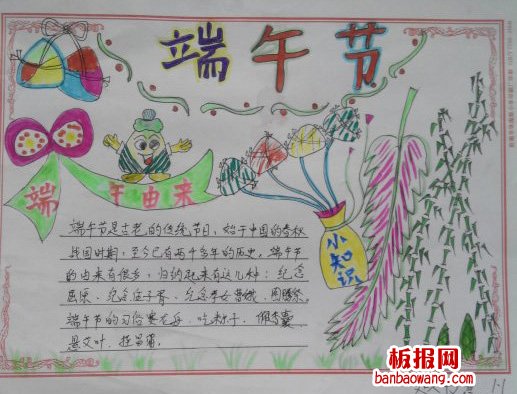 端午节
端午由来
端午节是古老的传统节日,始于中国的春秋
战国时期,至今已有两千多年的历史。端午节
的由来有很多,归纳起来有这几种:纪念
屈原、纪念伍子胥、纪念孝女曹娥、图腾祭。
端午节的习俗赛龙舟、吃粽子、佩香囊
悬艾叶、挂菖蒲。
小知识
板报网
banbaowang.com
1-1